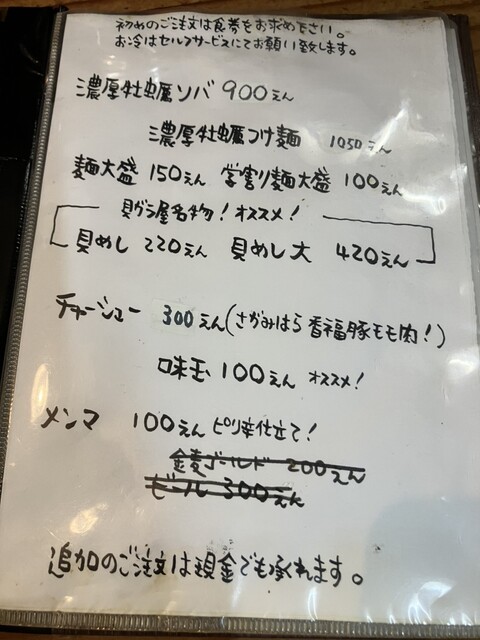 初めのご注文は食券をお求め下さい。
お冷はセルフサービスにてお願い致します。
濃厚牡蠣ソバ 900えん
濃厚牡蠣つけ麺 1050えん
麺大盛 150えん 学割り麺大盛 100えん
貝ガラ屋名物！オススメ！
貝めし 220えん 貝めし大 420えん
チャーシュー 300えん(さがみはら香福豚モモ肉！)
味玉 100えん オススメ！
メンマ 100えん ピリ辛仕立て！
金麦ゴールド 200えん
ビール 300えん
追加のご注文は現金でも承れます。